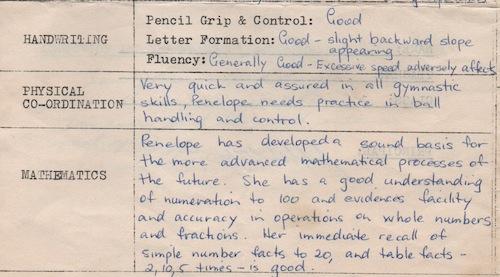 HANDWRITING
Pencil Grip & Control: Good
Letter Formation: Good - slight backward slope
appearing
Fluency: Generally Good - Excessive speed adversely affects
PHYSICAL
CO-ORDINATION
Very quick and assured in all gymnastic
skills, Penelope needs practice in ball
handling and control.
MATHEMATICS
Penelope has developed a sound basis for
the more advanced mathematical processes of
the future. She has a good understanding
of numeration to 100 and evidences facility
and accuracy in operations on whole numbers
and fractions. Her immediate recall of
simple number facts to 20, and table facts -
2, 10, 5 times - is good.